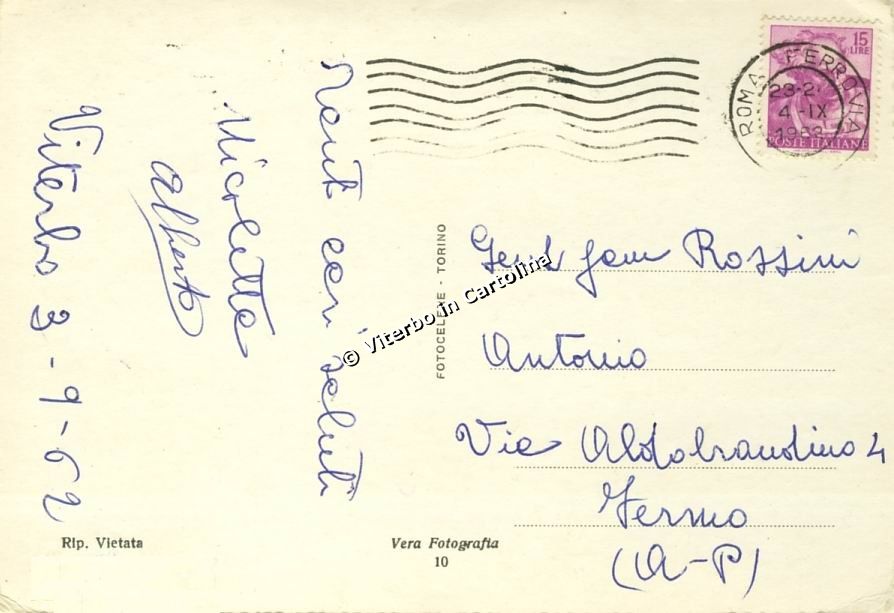 Tanti cari saluti
Nicoletta
Alberto
Viterbo 3-9-62
15
LIRE
POSTE ITALIANE
ROMA FERROVIA
4-IX
1962
© Viterbo in Cartolina
FOTOCELERE - TORINO
Gent fam Rossini
Antonio
Via Aldobrandino 4
Fermo
(A-P)
Rip. Vietata
Vera Fotografia
10